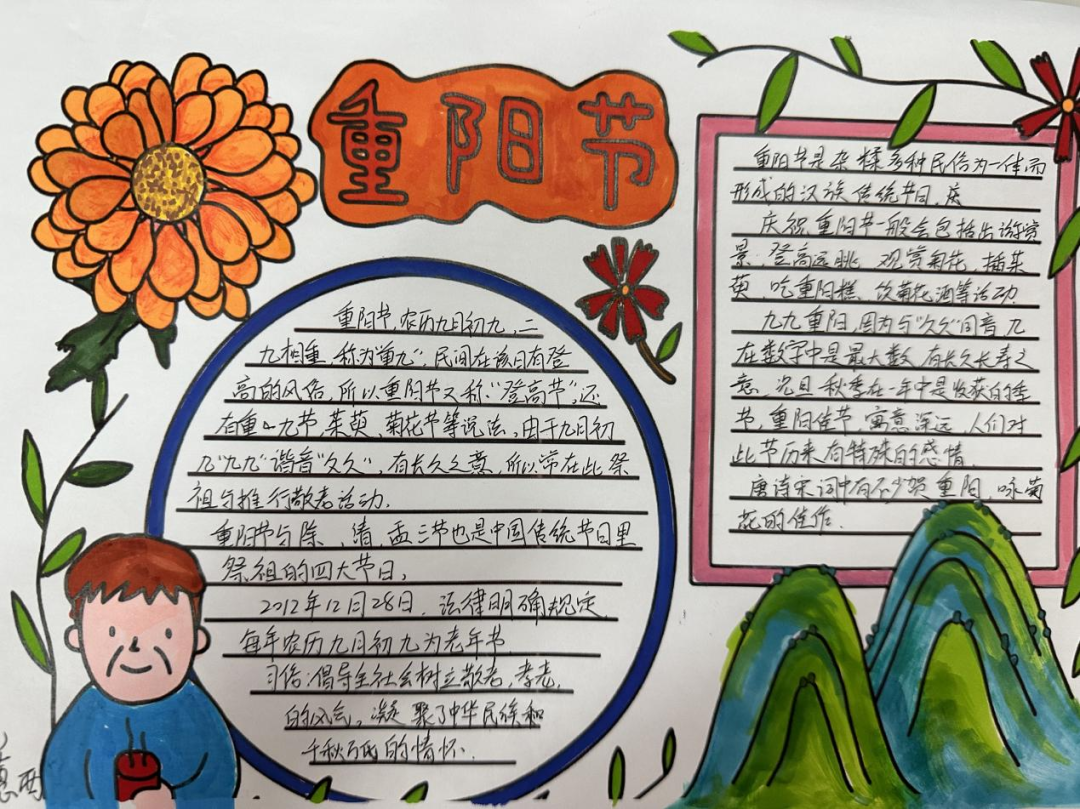 重阳节
重阳节,农历九月初九,二
九相重,称为"重九",民间在该日有登
高的风俗,所以重阳节又称"登高节",还
有重九节、茱萸、菊花节等说法,由于九月初
九"九九"谐音"久久",有长久之意,所以常在此祭
祖与推行敬老活动.
重阳节与除、清、盂三节也是中国传统节日里
祭祖的四大节日。
2012年12月28日,法律明确规定
每年农历九月初九为老年节
习俗:倡导全社会树立敬老、孝老
的风气。凝聚了中华民族和
千秋万氏的情怀.
重阳节是杂糅多种民俗为一体而
形成的汉族传统节日,庆
庆祝重阳节一般会包括出游赏
景、登高远眺、观赏菊花、插茱
萸、吃重阳糕、饮菊花酒等活动
九九重阳,因为与"久久"同音,九
在数字中是最大数,有长久长寿之
意,况且秋季在一年中是收获的季
节,重阳佳节,寓意深远,人们对
此节历来有特殊的感情
唐诗宋词中有不少贺重阳,咏菊
花的佳作.